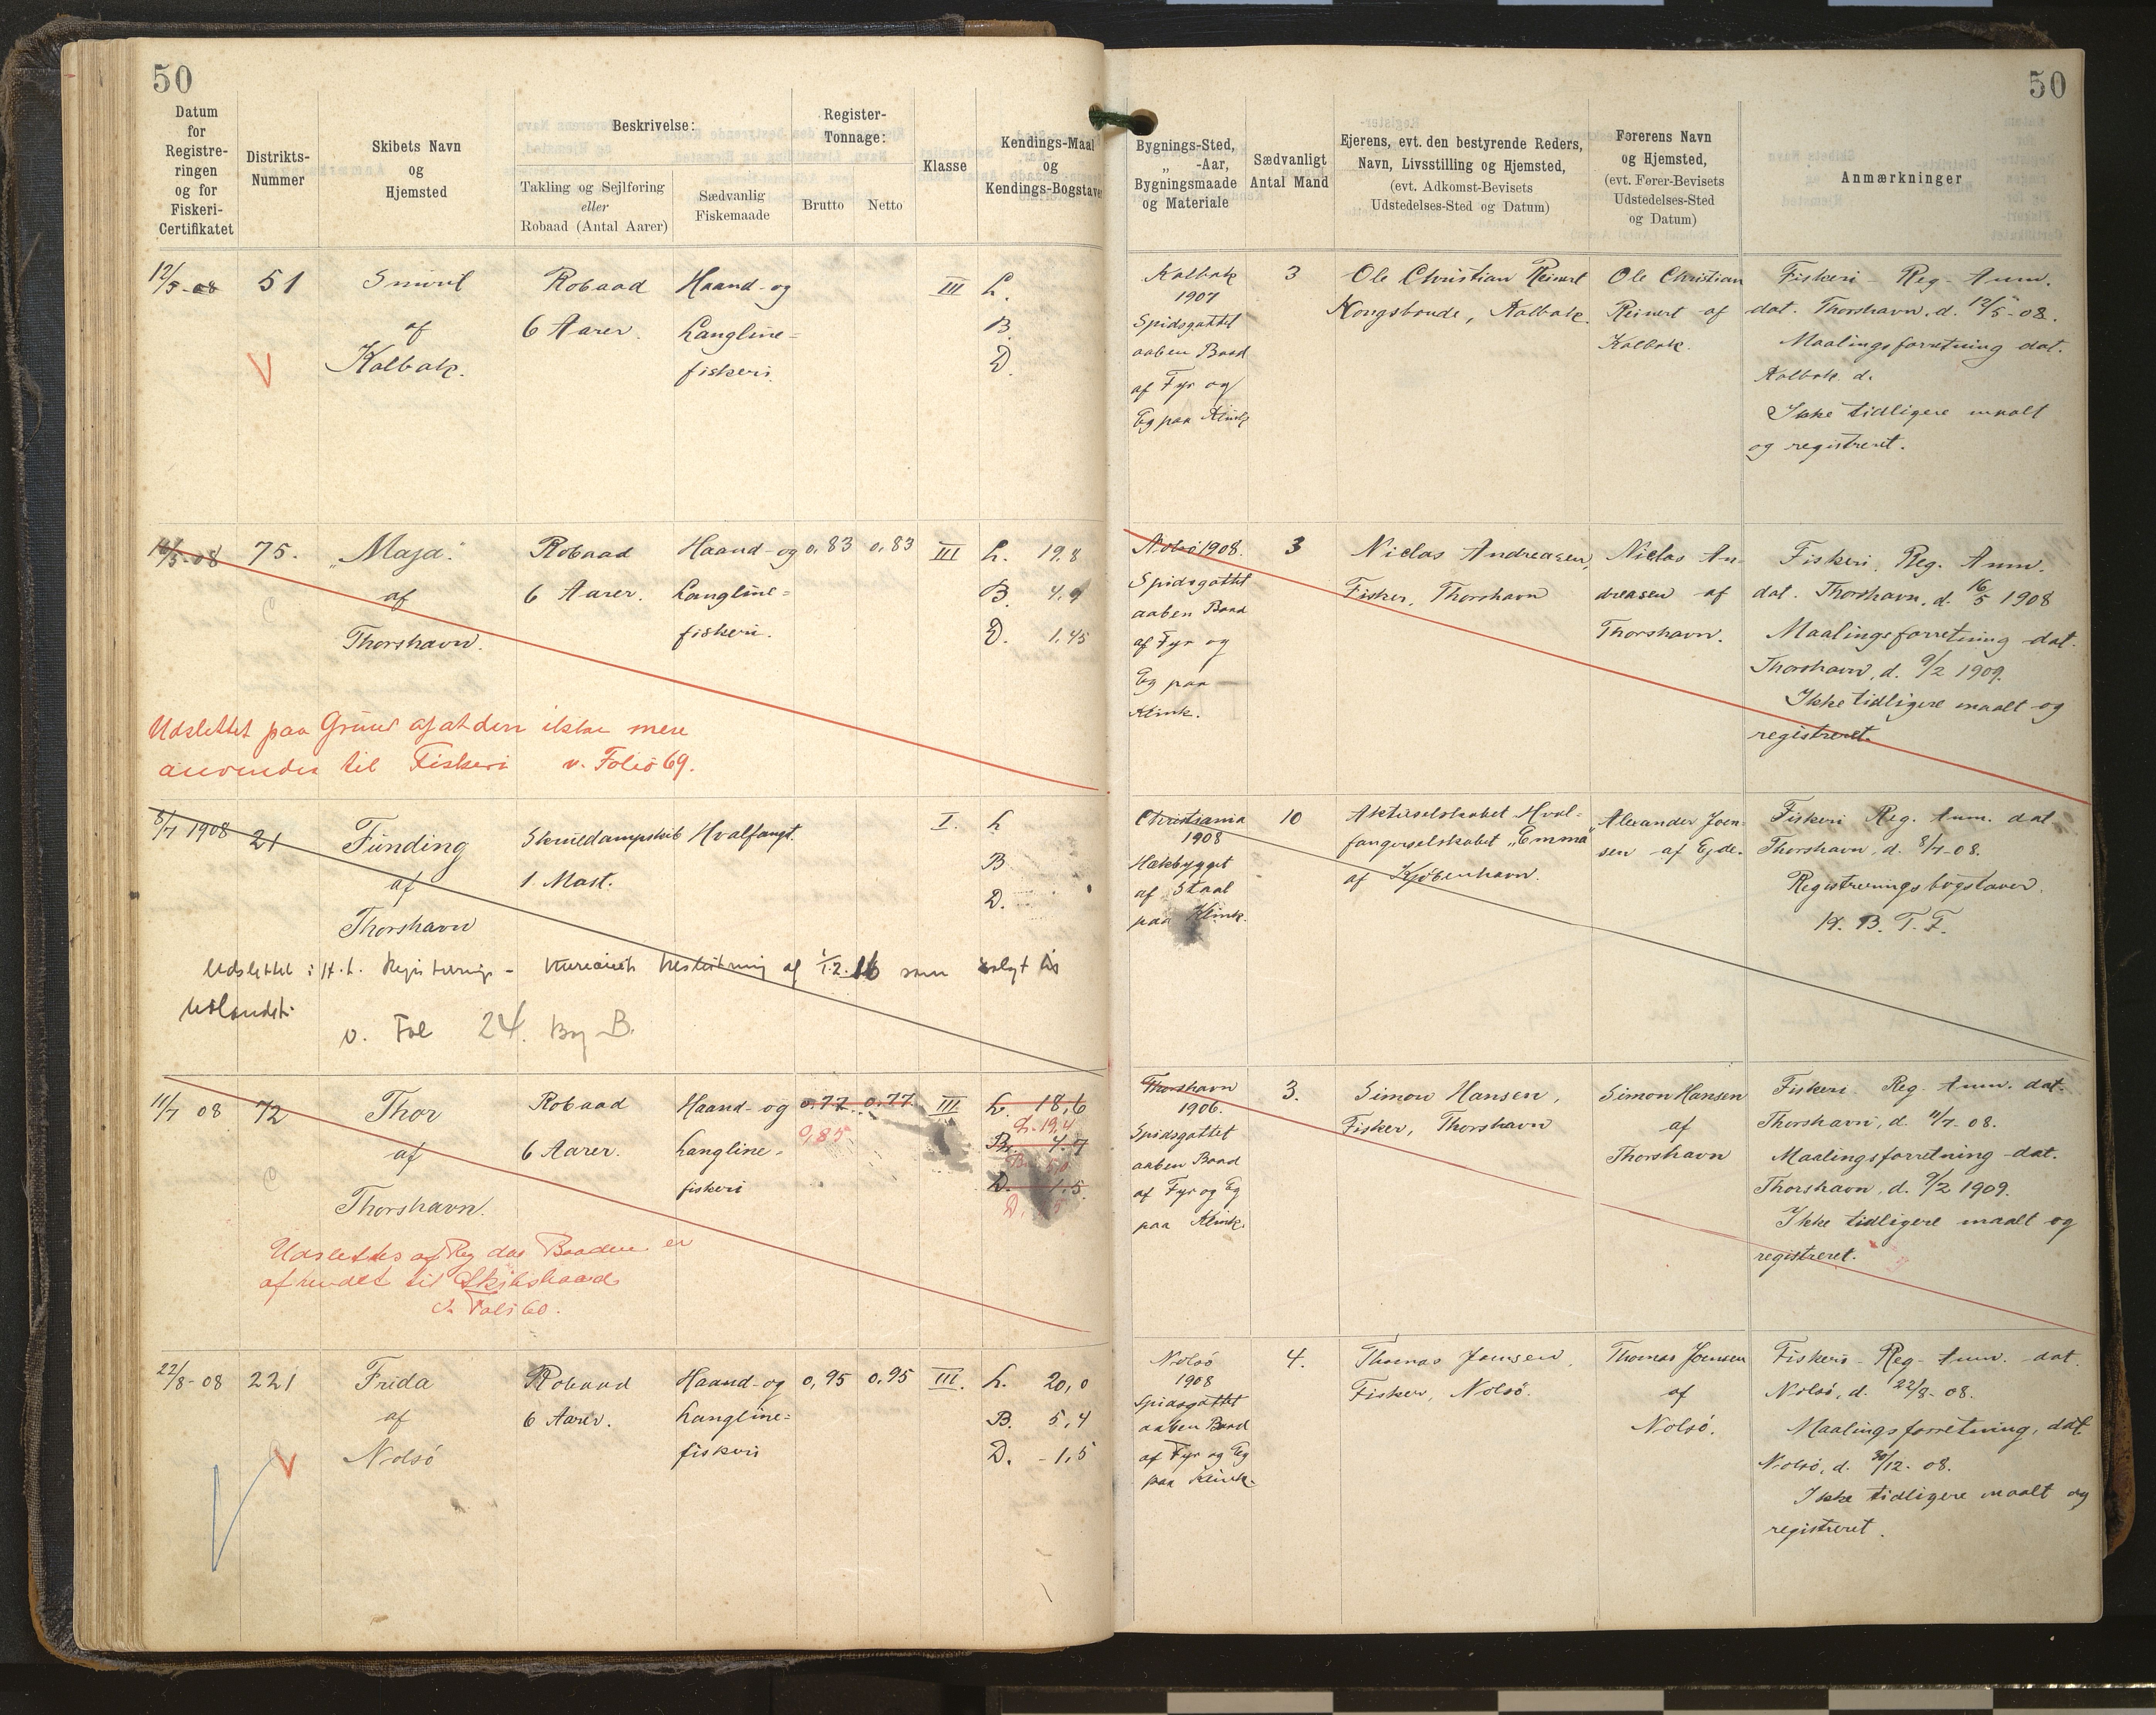 50
50
Datum for Registreringen og for Fiskeri-Certifikatet
Distrikts-Nummer
Skibets Navn og Hjemsted
Beskrivelse:
Takling og Sejlføring eller Robaad (Antal Aarer)
Sædvanlig Fiskemaade
Register-Tonnage:
Brutto
Netto
Klasse
Kendings-Maal og Kendings-Bogstaver
Bygnings-Sted, „ -Aar, Bygningsmaade og Materiale
Sædvanligt Antal Mand
Ejerens, evt. den bestyrende Reders, Navn, Livsstilling og Hjemsted, (evt. Adkomst-Bevisets Udstedelses-Sted og Datum)
Førerens Navn og Hjemsted, (evt. Fører-Bevisets Udstedelses-Sted og Datum)
Anmærkninger
12/5-08 51 Smiril Robaad Haand- og III L.
af 6 Aarer. Langline= B.
Kalbak. fiskeri D.
Kalbak 3 Ole Christian Reinert Ole Christian Fiskeri- Reg- Anm.
1907 Kongsbonde, Kalbak. Reinert af dat. Thorshavn, d. 12/5-08.
Spidsgattet Kalbak. Maalingsforretning dat.
aaben Baad Kalbak d.
af Fyr og Ikke tidligere maalt
Eg paa Klink og registreret.
16/5-08 75. „Maja" Robaad Haand- og 0,83 0,83 III L. 19,8
af 6 Aarer. Langline= B. 4,9
Thorshavn. fiskeri. D. 1,45
Udslettet paa Grund af at den ikke mere
anvendes til Fiskeri v. Folio 69.
Nolsø 1908. 3 Niclas Andreasen, Niclas An- Fiskeri. Reg. Anm.
Spidsgattet Fisker, Thorshavn dreasen af dat. Thorshavn, d. 16/5 1908
aaben Baad Thorshavn. Maalingsforretning dat.
af Fyr og Thorshavn, d. 9/2 1909.
Eg paa Ikke tidligere maalt og
Klink. registreret.
8/7 1908 21 Funding Skruedampskib Hvalfangst. I. L
af 1 Mast. B
Thorshavn D.
Udslettet i H. t. Registrerings- Bureauets Beslutning af 1.2.16 som solgt til
Udlandet.
v. Fol 24. Bog B.
Christiania 10 Aktieselskabet Hval- Alexander Joen- Fiskeri Reg. Anm. dat.
1908 fangerselskabet „Emma" sen af Ejde. Thorshavn, d. 8/7-08.
Hækbygget af Kjøbenhavn. Registreringsbogstaver
af Staal N. B. T. F.
paa Klink.
11/7 08 72 Thor Robaad Haand- og 0.77. 0.77. III. L. 18,6
0,85 L. 19,4
af 6 Aarer. Langline- B. 4.7
B. 5,0
Thorshavn. fiskeri D. 1.5.
Udslettes af Reg da Baaden er
afhendet til Skibsbaad
v. Folio 60.
Thorshavn 3. Simon Hansen, Simon Hansen Fiskeri. Reg. Anm. dat.
1906. Fisker, Thorshavn af Thorshavn, d. 11/7-08.
Spidsgattet Thorshavn Maalingsforretning dat.
aaben Baad Thorshavn, d. 9/2 1909.
af Fyr og Eg Ikke tidligere maalt og
paa Klink. registreret.
22/8-08 221 Frida Robaad Haand- og 0,95 0.95 III. L. 20,0
af 6 Aarer. Langline= B. 5,4
Nolsø fiskeri D. 1,5
Nolsø 4. Thomas Joensen, Thomas Joensen Fiskeri- Reg- Anm. dat.
1908 Fisker, Nolsø. af Nolsø, d. 22/8-08.
Spidsgattet Nolsø. Maalingsforretning, dat.
aaben Baad Nolsø, d. 30/12-08.
af Fyr og Eg Ikke tidligere maalt og
paa Klink. registreret.